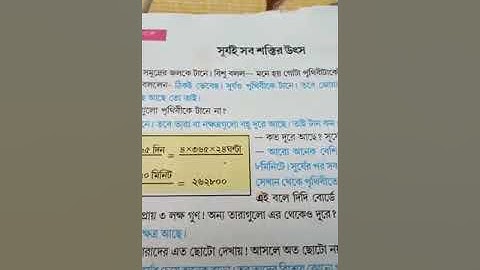 সূর্যই সব শক্তির উৎস
সমুদ্রের জলকে টানে। বিশু বলল— মনে হয় গোটা পৃথিবীটাকে
বললেন— ঠিকই ভেবেছ। সূর্যও পৃথিবীকে টানে। তবে
আছে তো তাই।
গুলো পৃথিবীকে টানে না?
নে। তবে তারা বা নক্ষত্রগুলো বহু দূরে আছে। তাই টান কম
— কত দূরে আছে? সূর্যে
৫ দিন = ৪×৩৬৫×২৪ঘণ্টা
— আরো অনেক বেশি
৮মিনিটে। সূর্যের পর সব
০ মিনিট = ২৬২৮০০
সেখান থেকে পৃথিবীতে
এই বলে দিদি বোর্ডে
প্রায় ৩ লক্ষ গুণ! অন্য তারাগুলো এর থেকেও দূরে?
ক্ষত্র আছে।
রাদের এত ছোটো দেখায়! আসলে অত ছোটো নয়